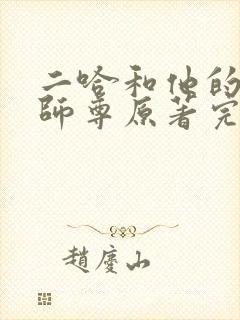 二哈和他的
師尊原著完
趙慶山